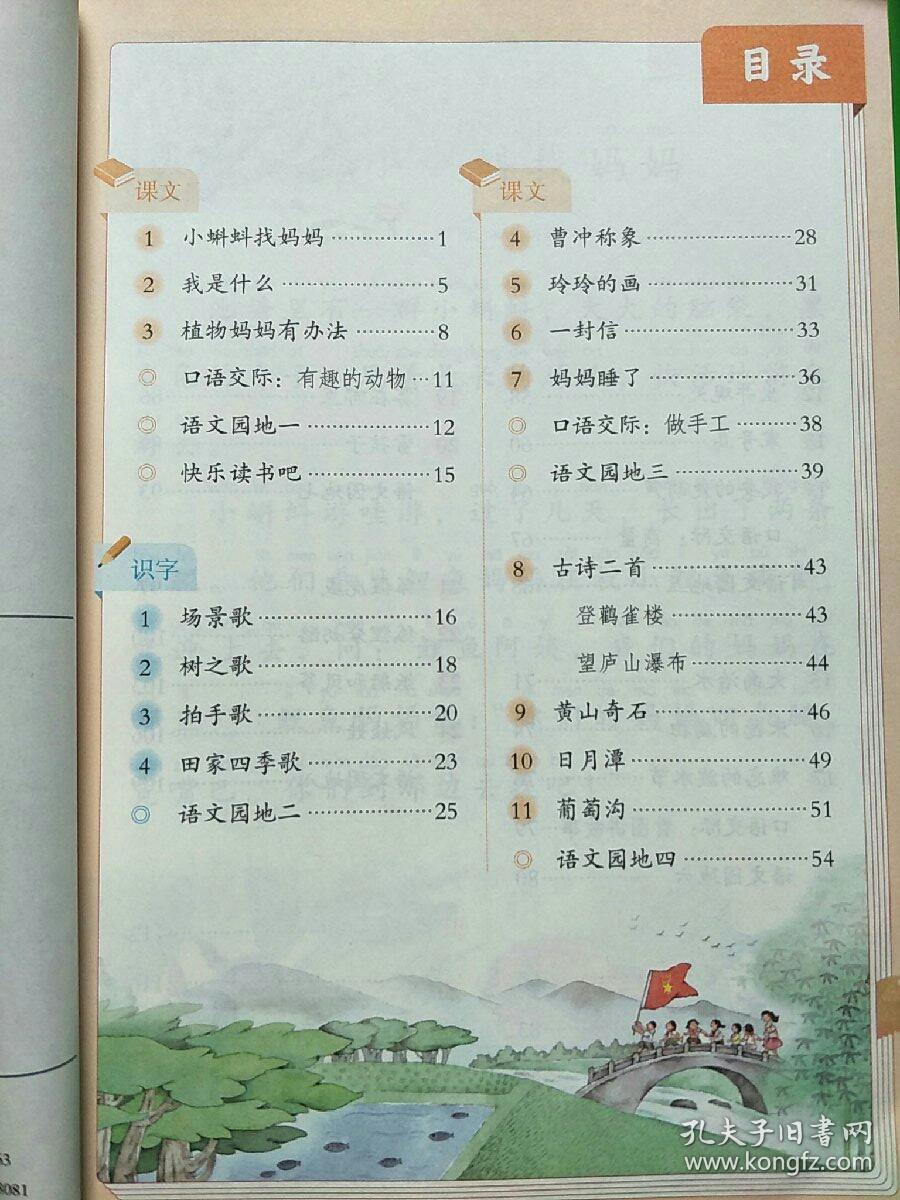 目录
课文
1 小蝌蚪找妈妈 ………………… 1
2 我是什么 ………………… 5
3 植物妈妈有办法 ………………… 8
◎ 口语交际：有趣的动物 … 11
◎ 语文园地一 ………………… 12
◎ 快乐读书吧 ………………… 15
识字
1 场景歌 ………………… 16
2 树之歌 ………………… 18
3 拍手歌 ………………… 20
4 田家四季歌 ………………… 23
◎ 语文园地二 ………………… 25
课文
4 曹冲称象 ………………… 28
5 玲玲的画 ………………… 31
6 一封信 ………………… 33
7 妈妈睡了 ………………… 36
◎ 口语交际：做手工 ………… 38
◎ 语文园地三 ………………… 39
8 古诗二首 ………………… 43
登鹳雀楼 ………………… 43
望庐山瀑布 ………………… 44
9 黄山奇石 ………………… 46
10 日月潭 ………………… 49
11 葡萄沟 ………………… 51
◎ 语文园地四 ………………… 54
53
8081
孔夫子旧書网
www.kongfz.com